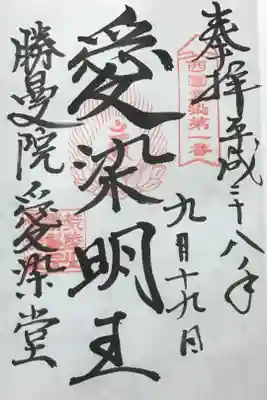 奉拝 平成二十八年
九月十九日
西国愛染第一番
愛染明王
勝曼院 愛染堂